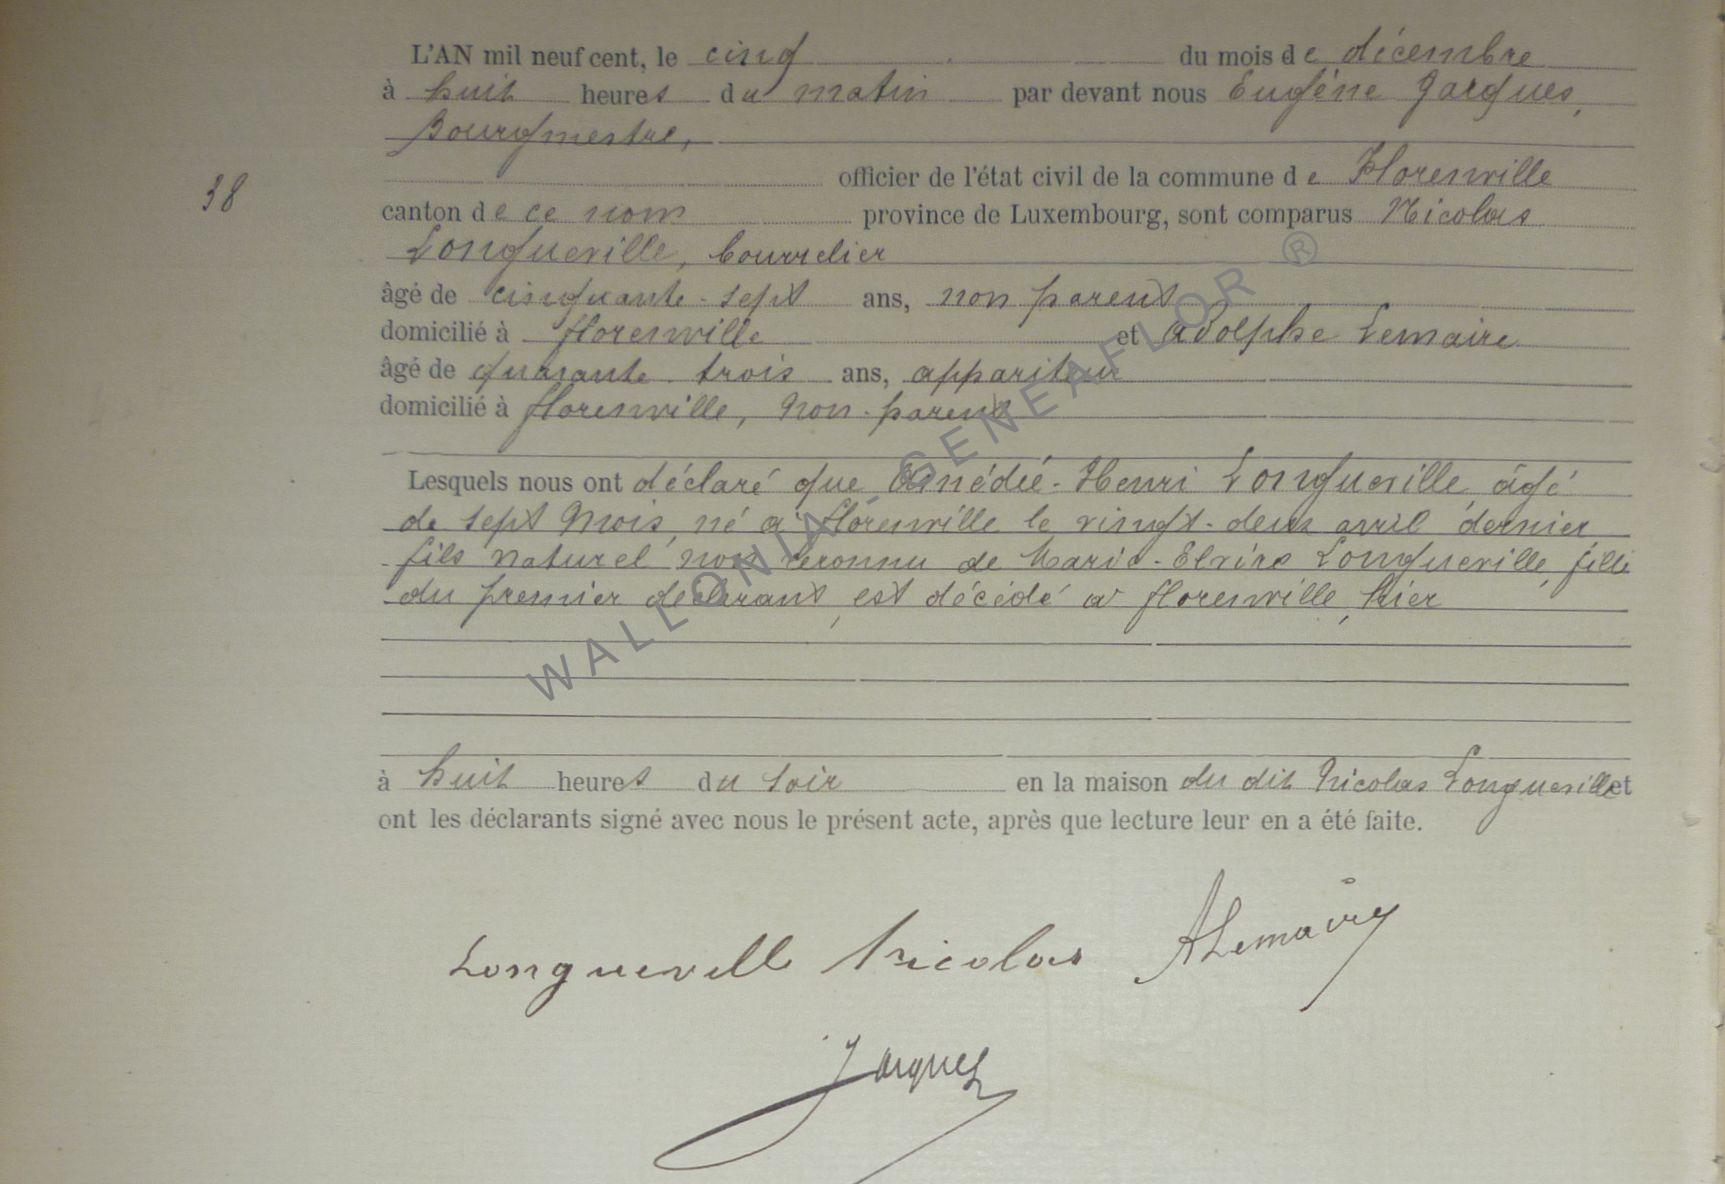 L'AN mil neuf cent, le cinq du mois de décembre
à huit heures du matin par devant nous Eugène Jacques,
Bourgmestre,
officier de l'état civil de la commune de Florenville
38
canton de ce nom province de Luxembourg, sont comparus Nicolas
Longueville, bourrelier
âgé de cinquante-sept ans, non parent
domicilié à florenville et Adolphe Lemaire
âgé de quarante-trois ans, appariteur
domicilié à florenville, non-parent
Lesquels nous ont déclaré que Amédée-Henri Longueville âgé
de sept mois, né à florenville le vingt-deux avril dernier
fils naturel non reconnu de Marie-Elvire Longueville, fille
du premier déclarant, est décédé à florenville, hier
à huit heures du soir en la maison du dit Nicolas Longueville et
ont les déclarants signé avec nous le présent acte, après que lecture leur en a été faite.
Longueville Nicolas ALemaire
Jacques
WALLONIA-GENEAFLOR ®